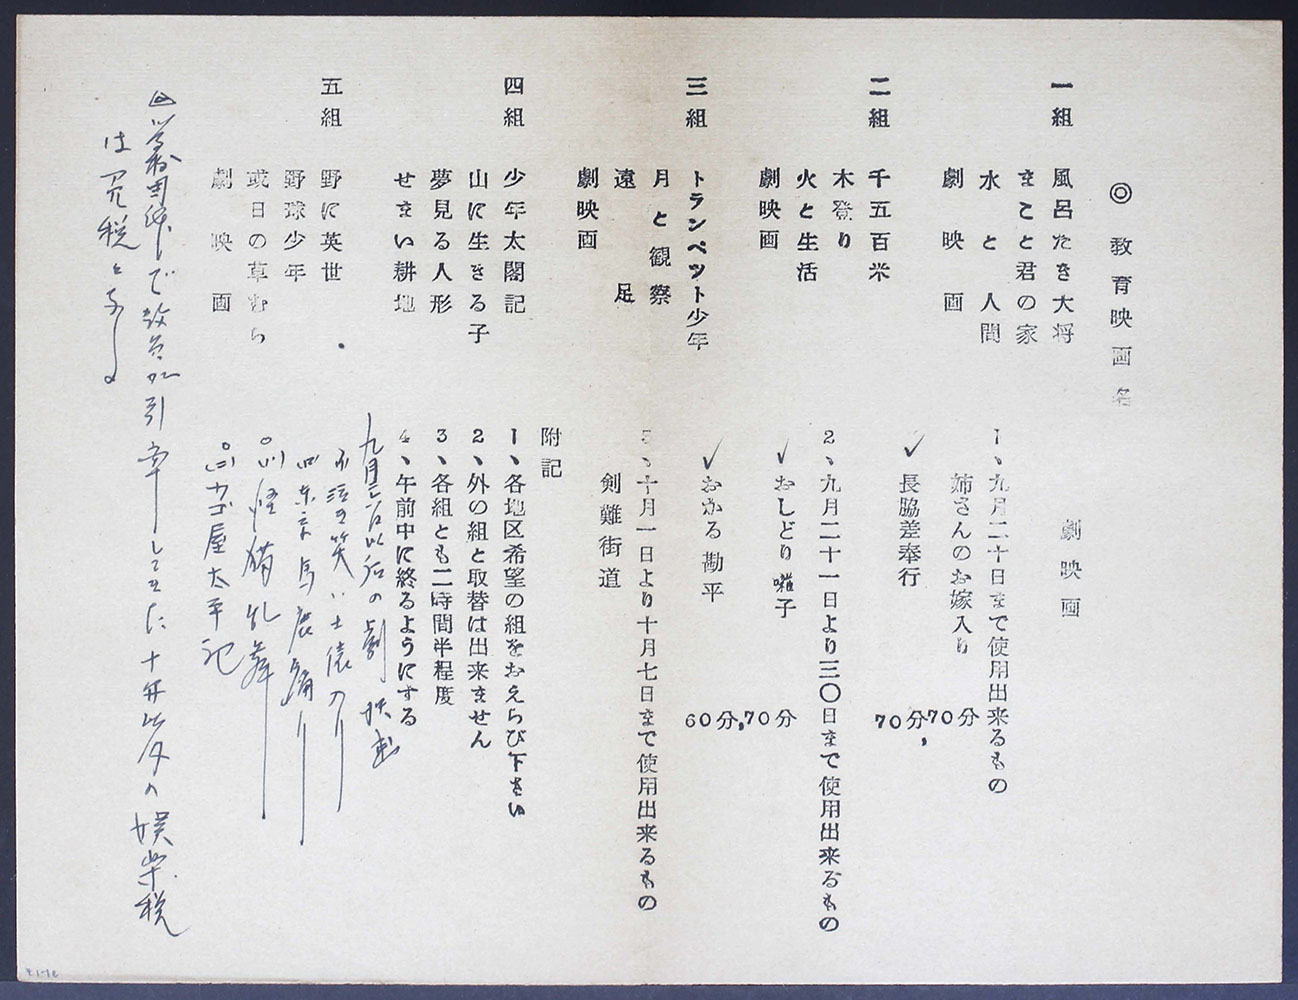 ◎教育映画名
一組
風呂たき大将
まこと君の家
水と人間
劇映画
二組
千五百米
木登り
火と生活
劇映画
三組
トランペット少年
月と観察
遠足
劇映画
四組
少年太閤記
山に生きる子
夢見る人形
せまい耕地
五組
野に英世
野球少年
或日の草むら
劇映画
劇映画
1、九月二十日まで使用出来るもの
姉さんのお嫁入り 70分,
✓長脇差奉行 70分,
2、九月二十一日より三〇日まで使用出来るもの
✓おしどり囃子 70分
✓おかる勘平 60分,
3、十月一日より十月七日まで使用出来るもの
剣難街道
附記
1、各地区希望の組をおえらび下さい
2、外の組と取替は出来ません
3、各組とも二時間半程度
4、午前中に終るようにする
以后の劇映画
笑い土俵入り
東京馬鹿踊り
怪猫乱舞
カゴ屋太平記
で教員が引率してきた十年以外の娯楽税
は免税とする